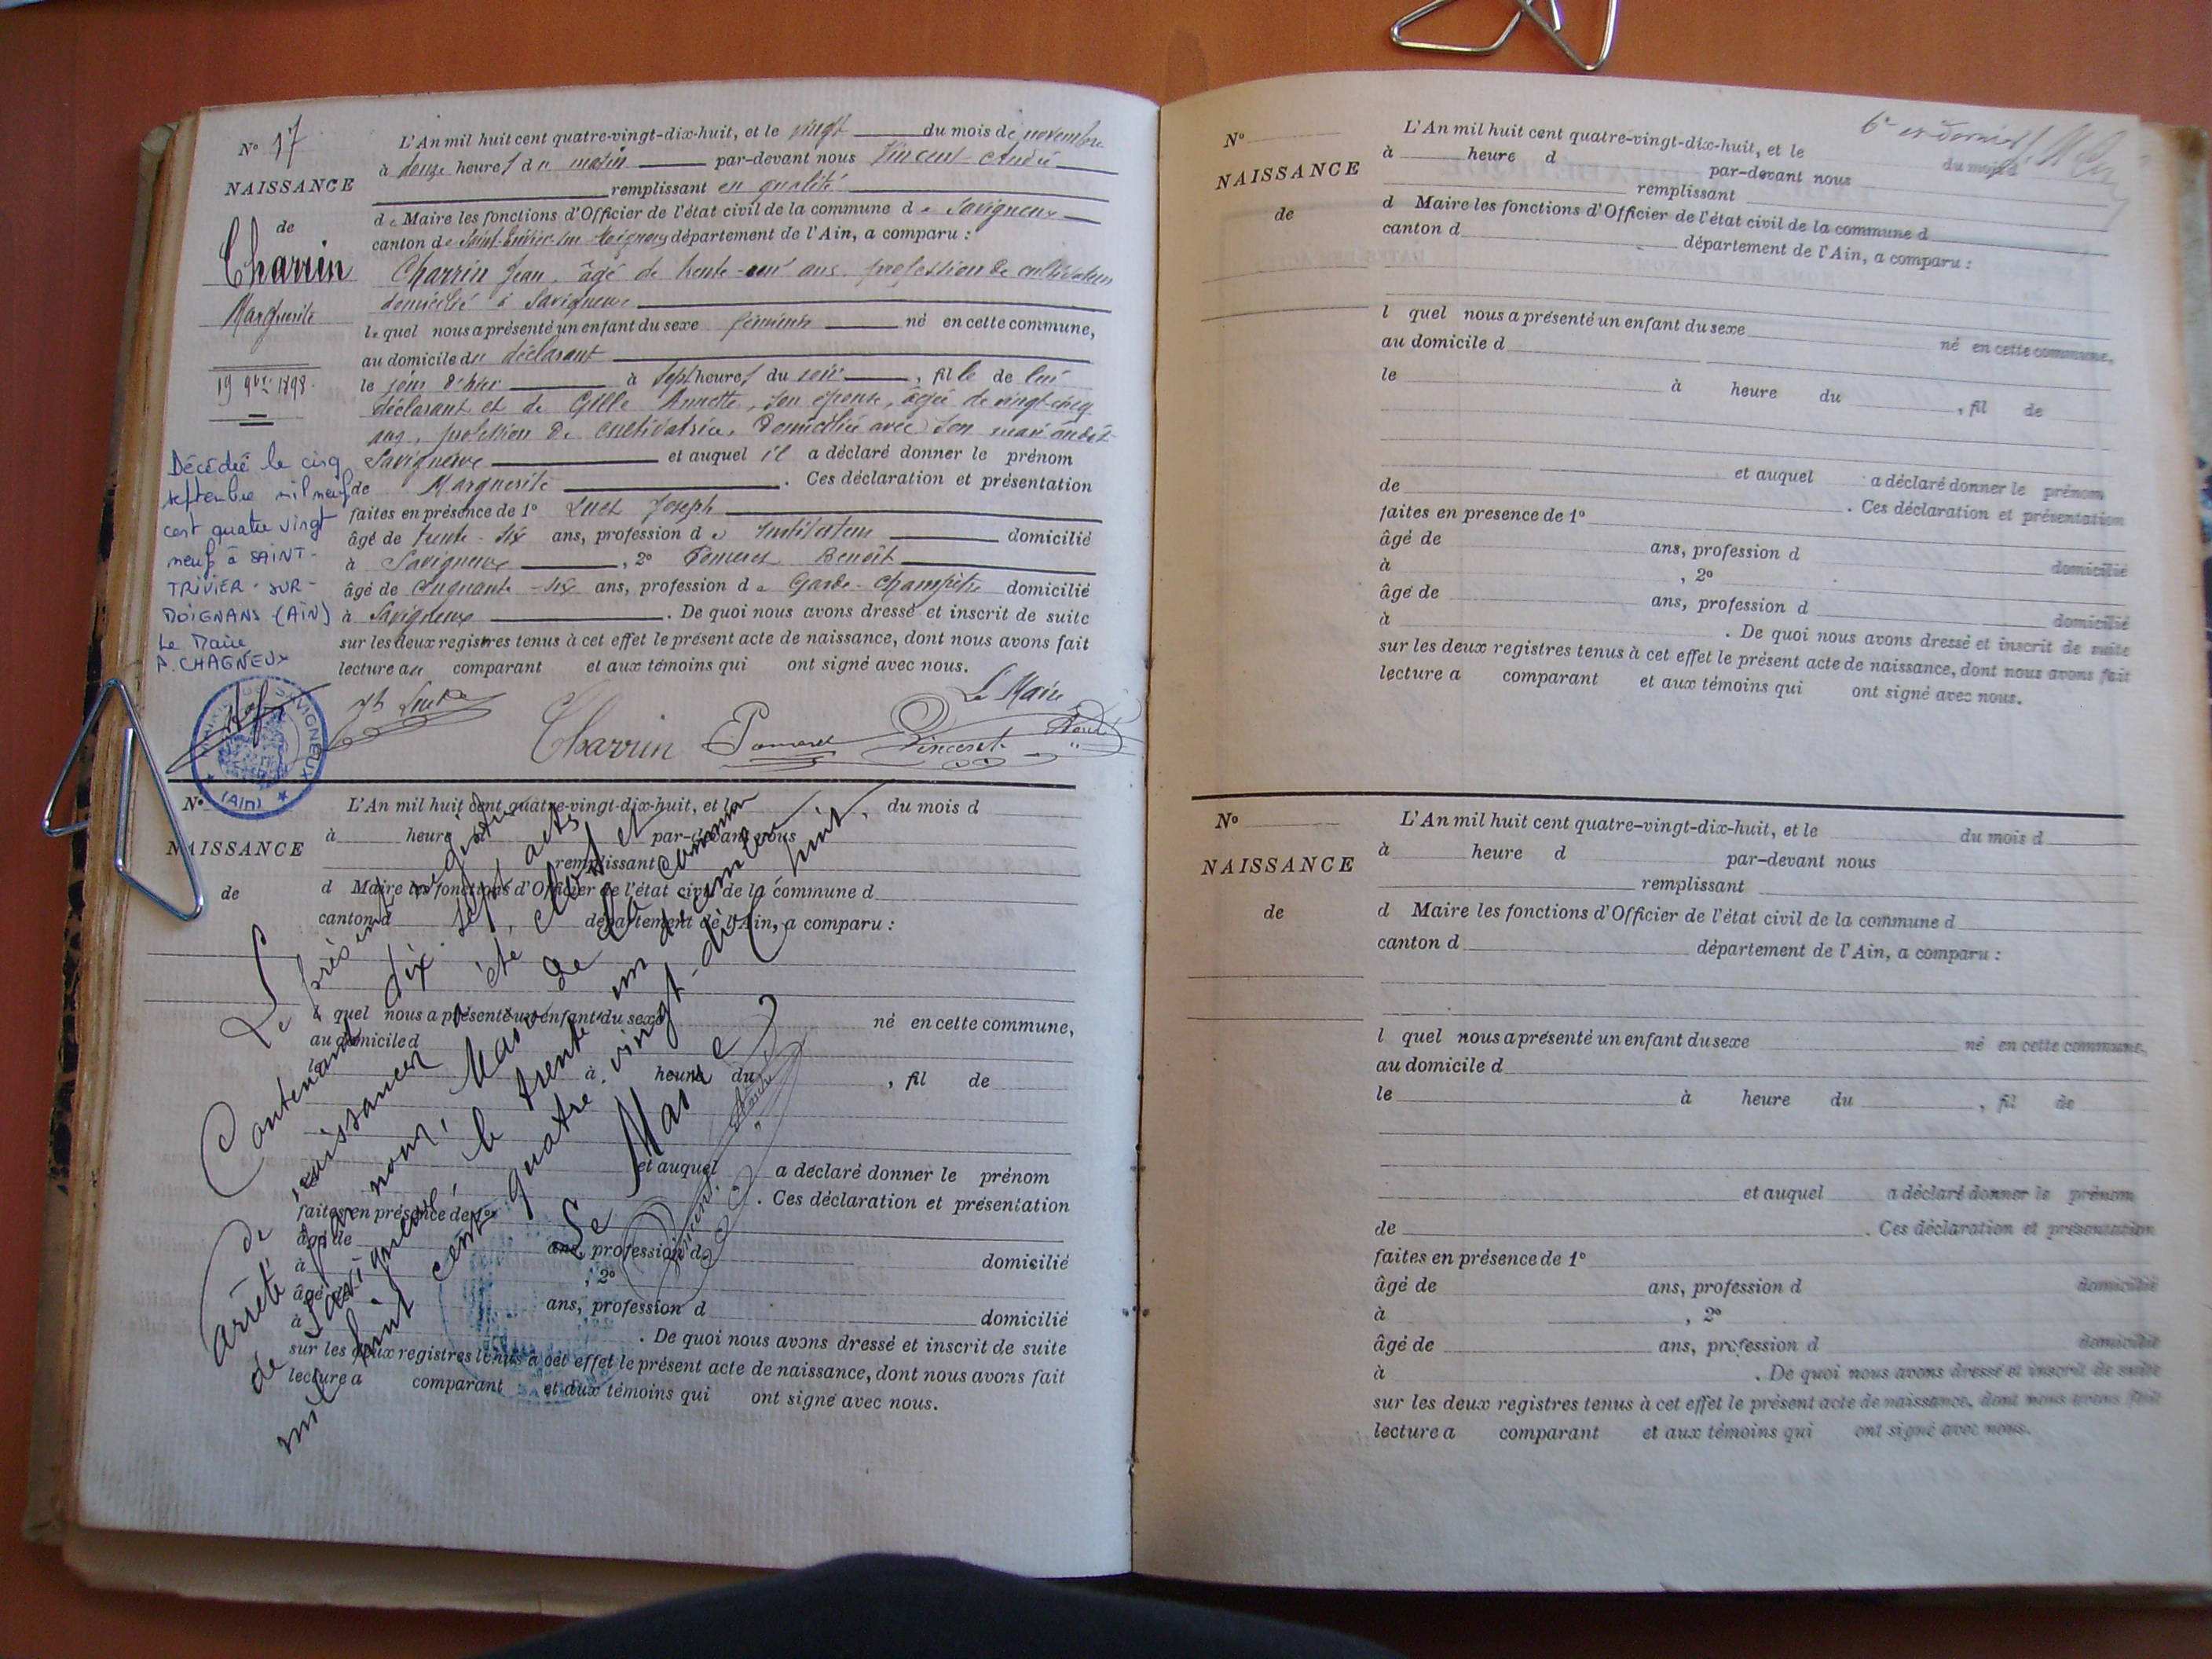 N° 17
NAISSANCE
de
Charrin
Marguerite
19 9bre 1898.
L'An mil huit cent quatre-vingt-dix-huit, et le vingt du mois de novembre
à heures du matin par-devant nous Vincent André
remplissant en qualité
de Maire les fonctions d'Officier de l'état civil de la commune de Savigneux
canton de Saint-Trivier sur Moignans département de l'Ain, a comparu :
Charrin Jean, âgé de trente-un ans, profession de cultivateur
domicilié à Savigneux
lequel nous a présenté un enfant du sexe féminin né en cette commune,
au domicile du déclarant
le jour d'hier à sept heures du soir, fille de lui
déclarant et de Gille Annette, son épouse, âgée de vingt-cinq
ans, profession de cultivatrice, domiciliée avec son mari audit
Savigneux et auquel il a déclaré donner le prénom
de Marguerite. Ces déclaration et présentation
faites en présence de 1° Joseph
âgé de trente-six ans, profession de Instituteur domicilié
à Savigneux, 2° Pomeret Benoît
âgé de cinquante-six ans, profession de Garde-Champêtre domicilié
à Savigneux. De quoi nous avons dressé et inscrit de suite
sur les deux registres tenus à cet effet le présent acte de naissance, dont nous avons fait
lecture au comparant et aux témoins qui ont signé avec nous.
Le Maire
Charrin Pomeret Vincent André
Décédée le cinq
septembre mil neuf
cent quatre vingt
neuf à SAINT-
TRIVIER-SUR-
MOIGNANS (AIN)
Le Maire
P. CHAGNEUX
SAVIGNEUX
(Ain)
N°
NAISSANCE
de
L'An mil huit cent quatre-vingt-dix-huit, et le du mois d
à heure par-devant nous
remplissant
d Maire les fonctions d'Officier de l'état civil de la commune d
canton d département de l'Ain, a comparu :
l quel nous a présenté un enfant du sexe né en cette commune,
au domicile d
le à heure du , fil de
et auquel a déclaré donner le prénom
. Ces déclaration et présentation
faites en présence de 1°
âgé de ans, profession d domicilié
à , 2°
âgé de ans, profession d domicilié
à . De quoi nous avons dressé et inscrit de suite
sur les deux registres tenus à cet effet le présent acte de naissance, dont nous avons fait
lecture a comparant et aux témoins qui ont signé avec nous.
Le présent registre
Contenant dix-sept actes
de naissances a été clos et
arrêté par nous, Maire de la commune
de Savigneux, le trente un décembre
mil huit cent quatre-vingt-dix huit.
Le Maire
Vincent André
6e et dernier
N°
NAISSANCE
de
L'An mil huit cent quatre-vingt-dix-huit, et le du mois d
à heure d par-devant nous
remplissant
d Maire les fonctions d'Officier de l'état civil de la commune d
canton d département de l'Ain, a comparu :
l quel nous a présenté un enfant du sexe né en cette commune,
au domicile d
le à heure du , fil de
et auquel a déclaré donner le prénom
de . Ces déclaration et présentation
faites en présence de 1°
âgé de ans, profession d domicilié
à , 2°
âgé de ans, profession d domicilié
à . De quoi nous avons dressé et inscrit de suite
sur les deux registres tenus à cet effet le présent acte de naissance, dont nous avons fait
lecture a comparant et aux témoins qui ont signé avec nous.
N°
NAISSANCE
de
L'An mil huit cent quatre-vingt-dix-huit, et le du mois d
à heure d par-devant nous
remplissant
d Maire les fonctions d'Officier de l'état civil de la commune d
canton d département de l'Ain, a comparu :
l quel nous a présenté un enfant du sexe né en cette commune,
au domicile d
le à heure du , fil de
et auquel a déclaré donner le prénom
de . Ces déclaration et présentation
faites en présence de 1°
âgé de ans, profession d domicilié
à , 2°
âgé de ans, profession d domicilié
à . De quoi nous avons dressé et inscrit de suite
sur les deux registres tenus à cet effet le présent acte de naissance, dont nous avons fait
lecture a comparant et aux témoins qui ont signé avec nous.